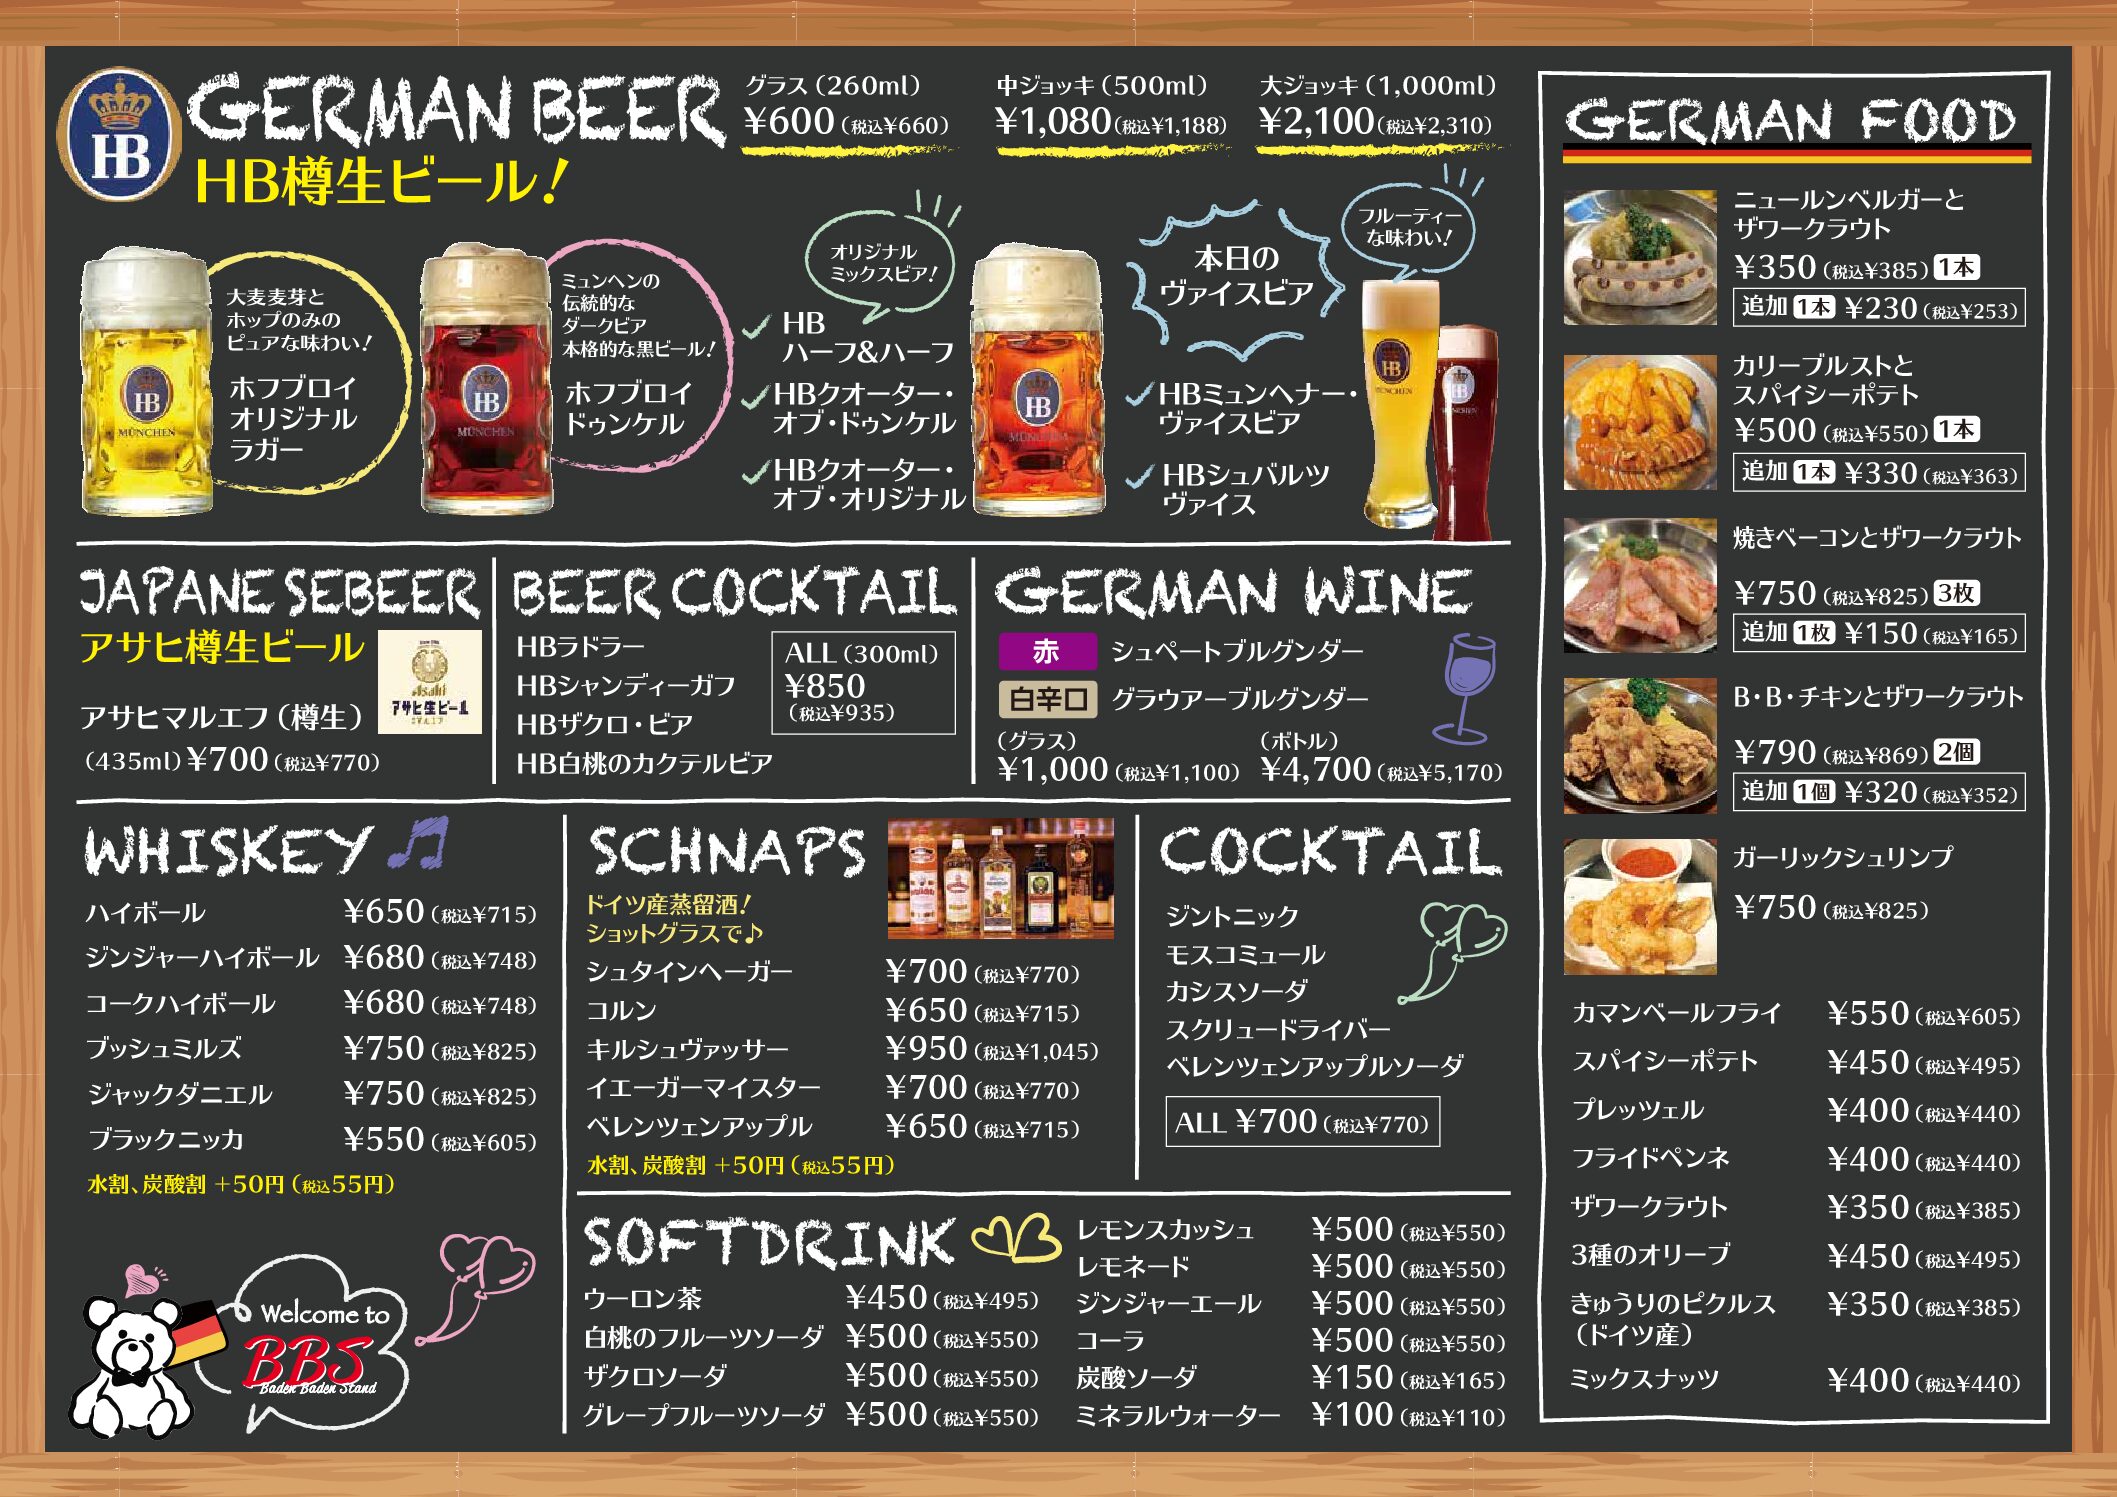 HB
GERMAN BEER
HB樽生ビール!
グラス（260ml）
¥600（税込¥660）
中ジョッキ（500ml）
¥1,080（税込¥1,188）
大ジョッキ（1,000ml）
¥2,100（税込¥2,310）
HB
MÜNCHEN
大麦麦芽と
ホップのみの
ピュアな味わい!
ホフブロイ
オリジナル
ラガー
HB
MÜNCHEN
ミュンヘンの
伝統的な
ダークビア
本格的な黒ビール!
ホフブロイ
ドゥンケル
オリジナル
ミックスビア!
HB
ハーフ&ハーフ
HBクオーター・
オブ・ドゥンケル
HBクオーター・
オブ・オリジナル
HB
MÜNCHEN
本日の
ヴァイスビア
フルーティー
な味わい!
HBミュンヘナー・
ヴァイスビア
HBシュバルツ
ヴァイス
HB
MÜNCHEN
HB
JAPANESEBEER
アサヒ樽生ビール
Asahi
アサヒ生ビール
アサヒマルエフ（樽生）
（435ml）¥700（税込¥770）
BEER COCKTAIL
HBラドラー
HBシャンディーガフ
HBザクロ・ビア
HB白桃のカクテルビア
ALL（300ml）
¥850
（税込¥935）
GERMAN WINE
赤 シュペートブルグンダー
白辛口 グラウアーブルグンダー
（グラス）
¥1,000（税込¥1,100）
（ボトル）
¥4,700（税込¥5,170）
WHISKEY
ハイボール ¥650（税込¥715）
ジンジャーハイボール ¥680（税込¥748）
コークハイボール ¥680（税込¥748）
ブッシュミルズ ¥750（税込¥825）
ジャックダニエル ¥750（税込¥825）
ブラックニッカ ¥550（税込¥605）
水割、炭酸割 +50円（税込55円）
Welcome to
BBS
Baden Baden Stand
SCHNAPS
ドイツ産蒸留酒!
ショットグラスで♪
シュタインヘーガー ¥700（税込¥770）
コルン ¥650（税込¥715）
キルシュヴァッサー ¥950（税込¥1,045）
イエーガーマイスター ¥700（税込¥770）
ベレンツェンアップル ¥650（税込¥715）
水割、炭酸割 +50円（税込55円）
COCKTAIL
ジントニック
モスコミュール
カシスソーダ
スクリュードライバー
ベレンツェンアップルソーダ
ALL ¥700（税込¥770）
SOFTDRINK
ウーロン茶 ¥450（税込¥495）
白桃のフルーツソーダ ¥500（税込¥550）
ザクロソーダ ¥500（税込¥550）
グレープフルーツソーダ ¥500（税込¥550）
レモンスカッシュ ¥500（税込¥550）
レモネード ¥500（税込¥550）
ジンジャーエール ¥500（税込¥550）
コーラ ¥500（税込¥550）
炭酸ソーダ ¥150（税込¥165）
ミネラルウォーター ¥100（税込¥110）
GERMAN FOOD
ニュールンベルガーと
ザワークラウト
¥350（税込¥385）1本
追加 1本 ¥230（税込¥253）
カリーブルストと
スパイシーポテト
¥500（税込¥550）1本
追加 1本 ¥330（税込¥363）
焼きベーコンとザワークラウト
¥750（税込¥825）3枚
追加 1枚 ¥150（税込¥165）
B・B・チキンとザワークラウト
¥790（税込¥869）2個
追加 1個 ¥320（税込¥352）
ガーリックシュリンプ
¥750（税込¥825）
カマンベールフライ ¥550（税込¥605）
スパイシーポテト ¥450（税込¥495）
プレッツェル ¥400（税込¥440）
フライドペンネ ¥400（税込¥440）
ザワークラウト ¥350（税込¥385）
3種のオリーブ ¥450（税込¥495）
きゅうりのピクルス ¥350（税込¥385）
（ドイツ産）
ミックスナッツ ¥400（税込¥440）